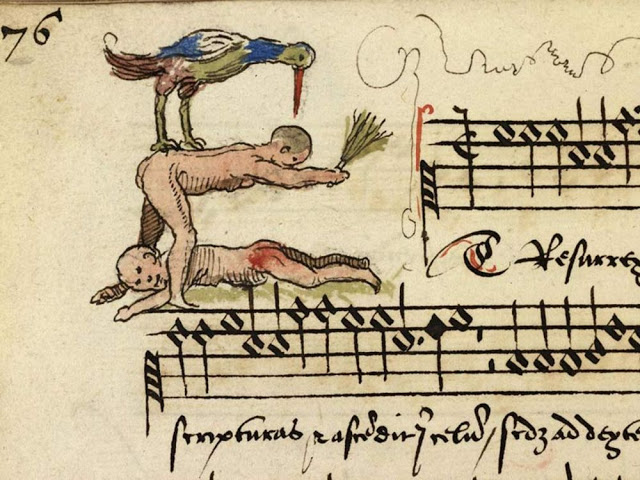 76
Et Resurrex
scripturas et ascēdit ī celū / sedz ad dexte